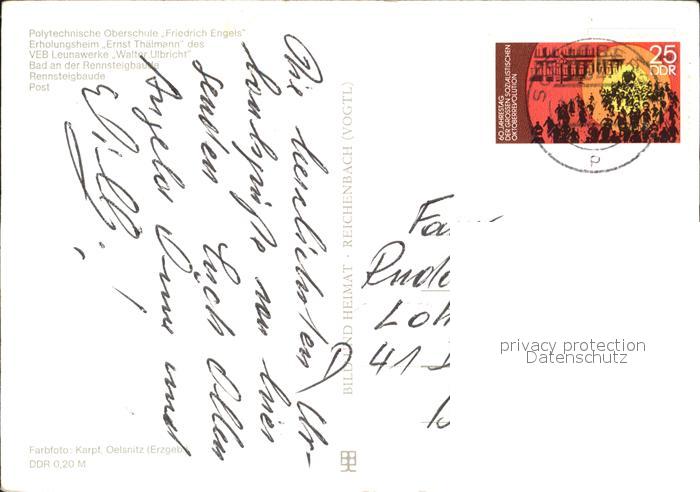 Polytechnische Oberschule „Friedrich Engels"
Erholungsheim „Ernst Thälmann" des
VEB Leunawerke „Walter Ulbricht"
Bad an der Rennsteigbaude
Rennsteigbaude
Post
Die herzlichsten Ur-
laubsgrüße von hier
senden Euch Allen
Angela Omi und
Willi!
BILD UND HEIMAT · REICHENBACH (VOGTL)
60. JAHRESTAG
DER GROSSEN SOZIALISTISCHEN
OKTOBERREVOLUTION
25
DDR
p
Fa
Rud
41
privacy protection
Datenschutz
Farbfoto: Karpf, Oelsnitz (Erzgeb.
DDR 0,20 M